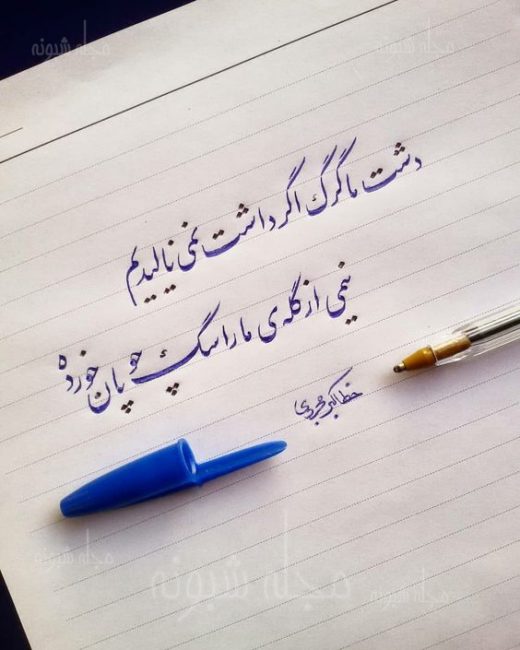 مجله شبونه
مجله شبونه
دشت ما گرگ اگر داشت نمی نالیدیم
نیمی از گله ی ما را سگ چوپان خورده
مجله شبونه
مجله شبونه
مجله شبونه